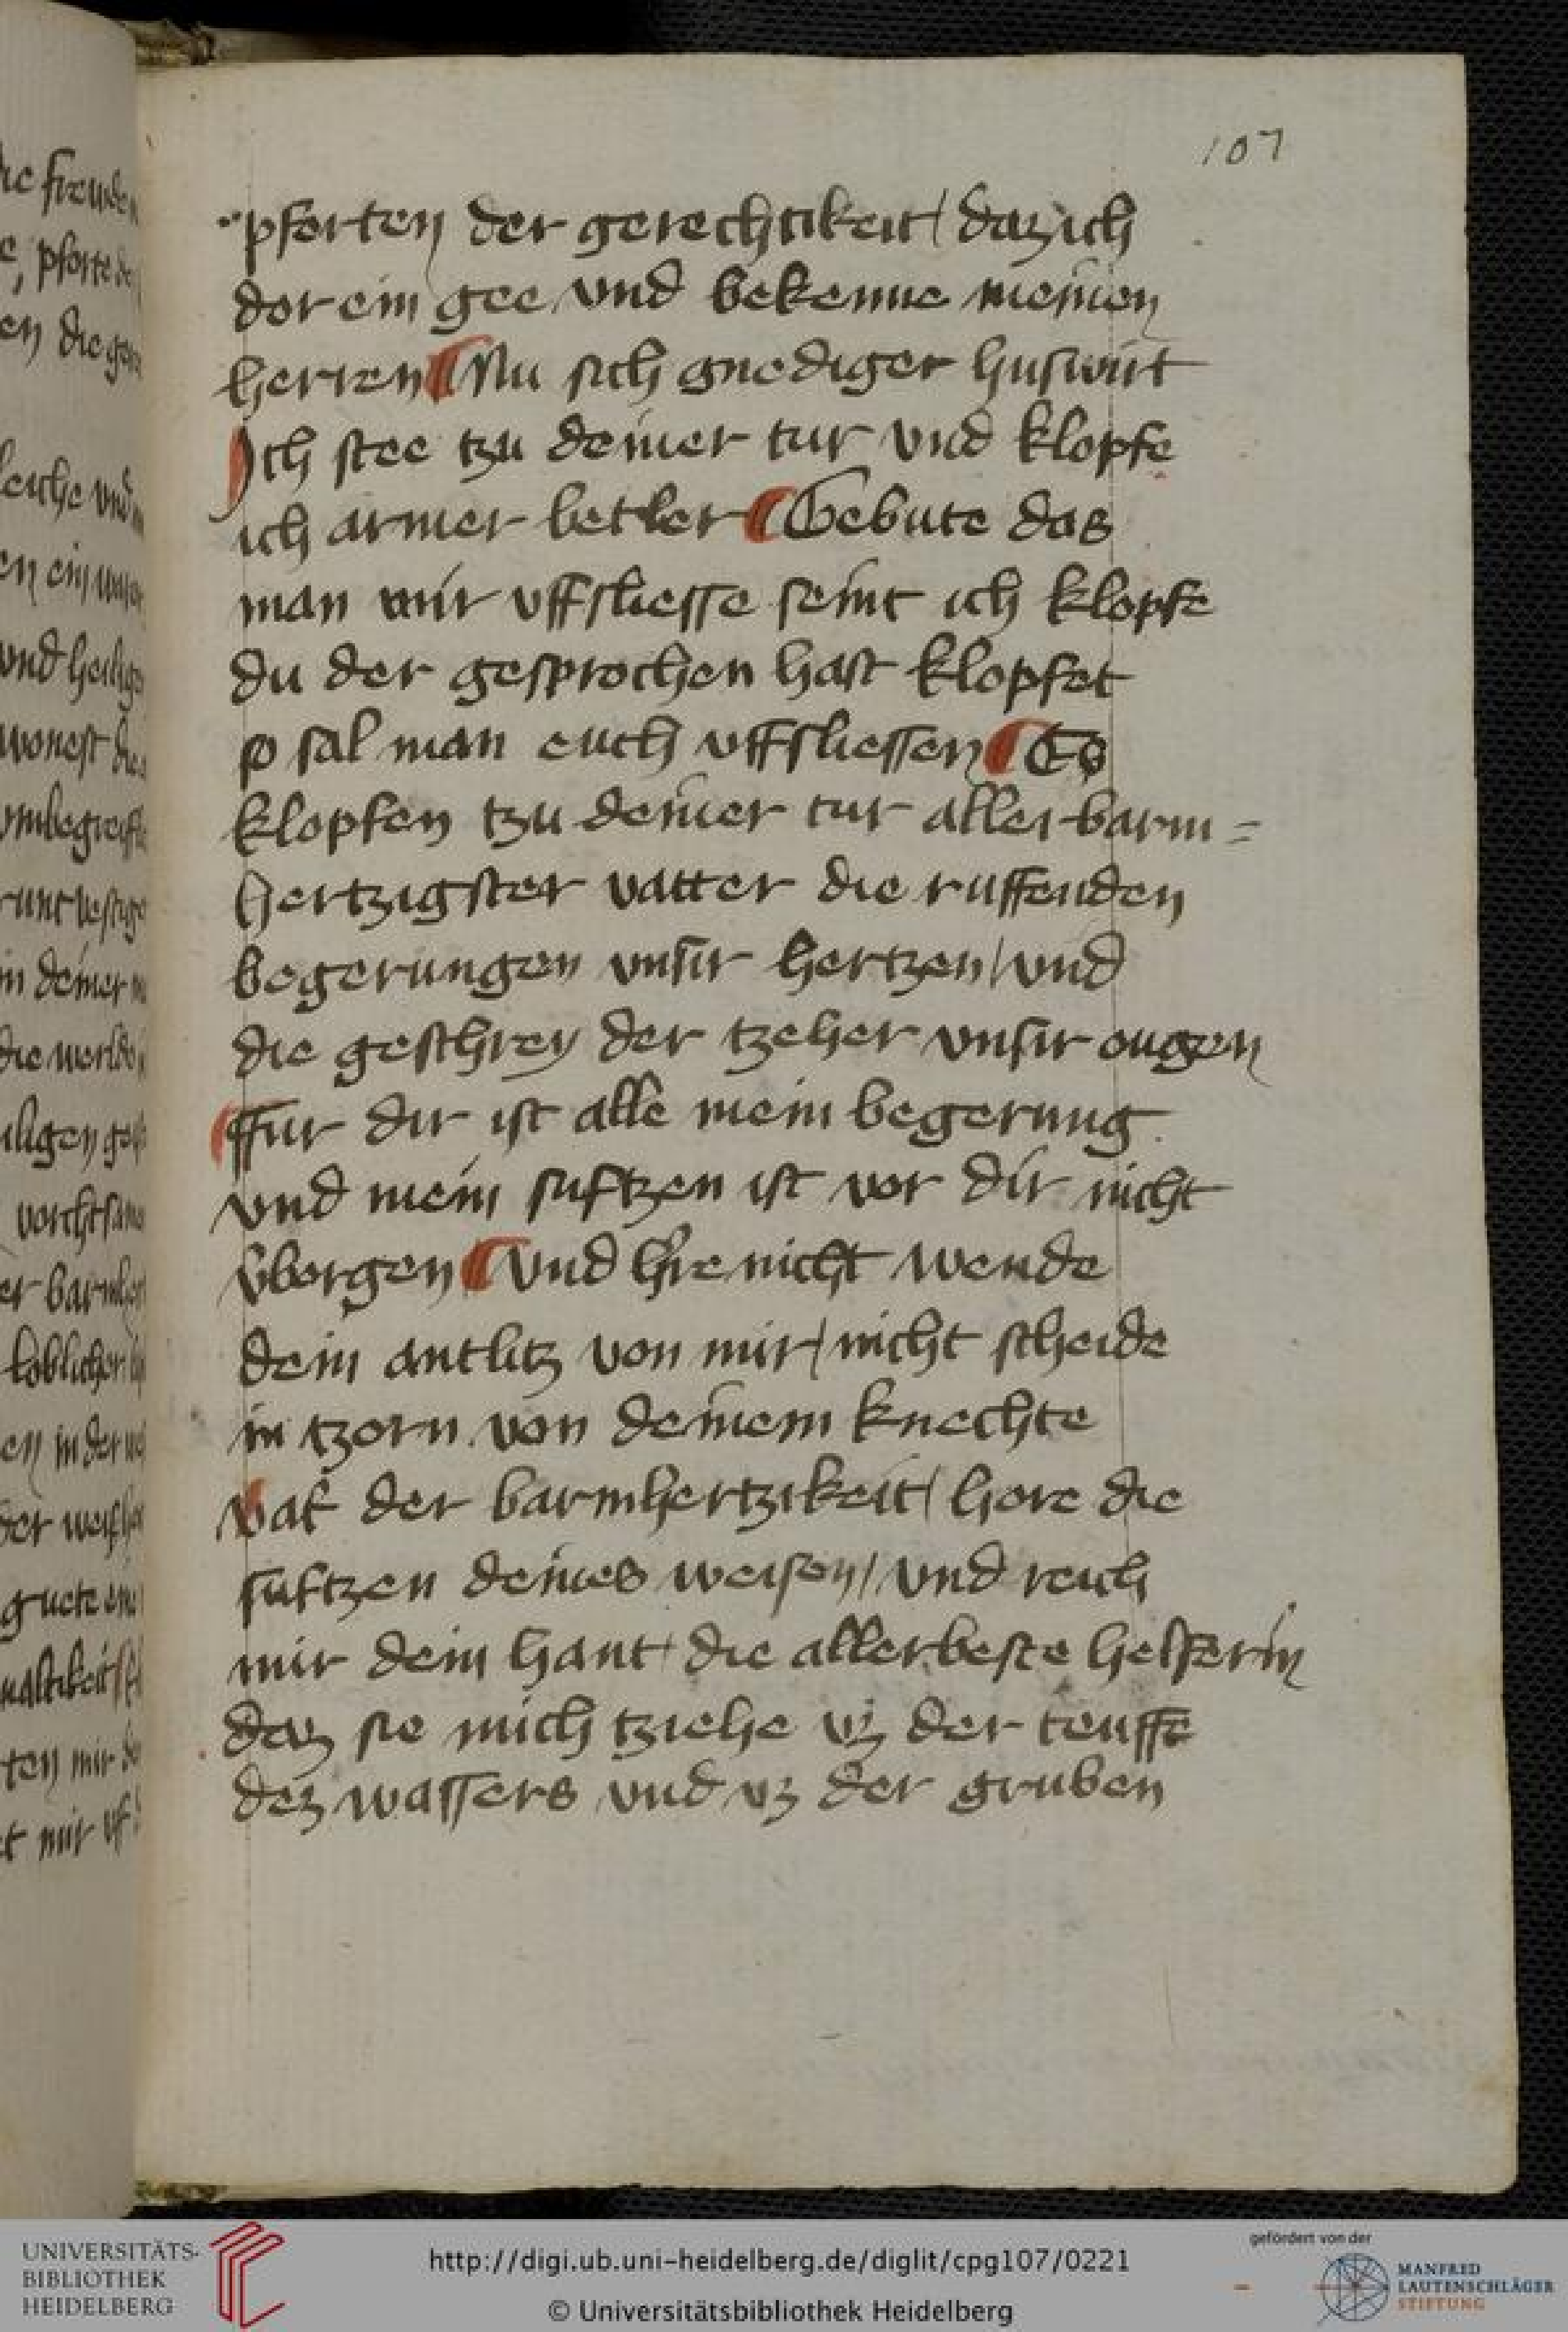 107
pforten der gerechtikeit / daz ich
dor ein gee und bekenne meinen
herren Nu sich gnediger huswirt
Ich stee tzu deiner tur und klopfe
ich armer betler Gebute das
man mir uffsliesse seint ich klopfe
du der gesprochen hast klopfet
so sal man euch uffsliessen Es
klopfen tzu deiner tur aller barm=
hertzigster vatter die ruffenden
begerungen unsir hertzen / und
die geschrey der tzeher unsir ougen
ffur dir ist alle mein begerung
und mein suftzen ist vor dir nicht
vborgen und hre nicht wende
dein antlitz von mir / nicht scheide
in tzorn von deinem knechte
vat der barmhertzikeit / hore die
suftzen deines weisen / und reich
mir dein hant die allerbeste helferin
daz sie mich tziehe uz der teuffe
dez wassers und uz der gruben
die freuden
pforte de
en die ge
leiche und
und heilige
wonest
in deiner
die werlde
iligen
vorchtsam
er barmher
loblicher
en in der
der weish
guete
ten mir
t mir uf
UNIVERSITÄTS-
BIBLIOTHEK
HEIDELBERG
http://digi.ub.uni-heidelberg.de/diglit/cpg107/0221
© Universitätsbibliothek Heidelberg
gefördert von der
MANFRED
LAUTENSCHLÄGER
STIFTUNG